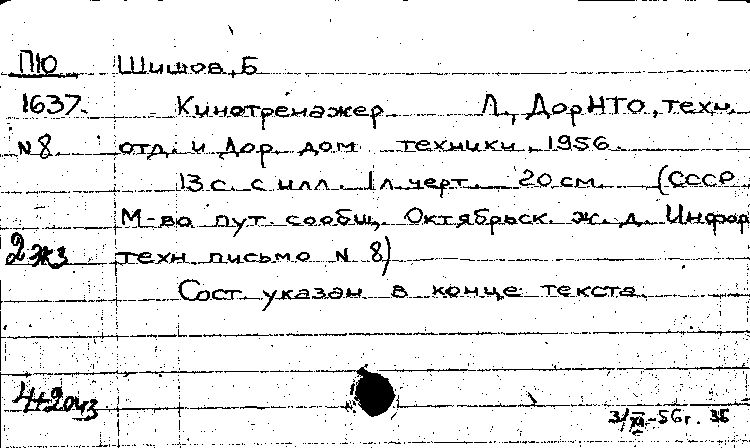 ПЮ Шишов, Б
1637. Кинотренажер. Л., ДорНТО, техн.
№8. отд. и Дор. дом техники, 1956.
13 с. с илл. 1 л. черт. 20 см. (СССР
М-во пут. сообщ. Октябрьск. ж. д. Инфор
2 экз техн. письмо № 8)
Сост. указан в конце текста
4+2очз
3/XI-56 г. 35